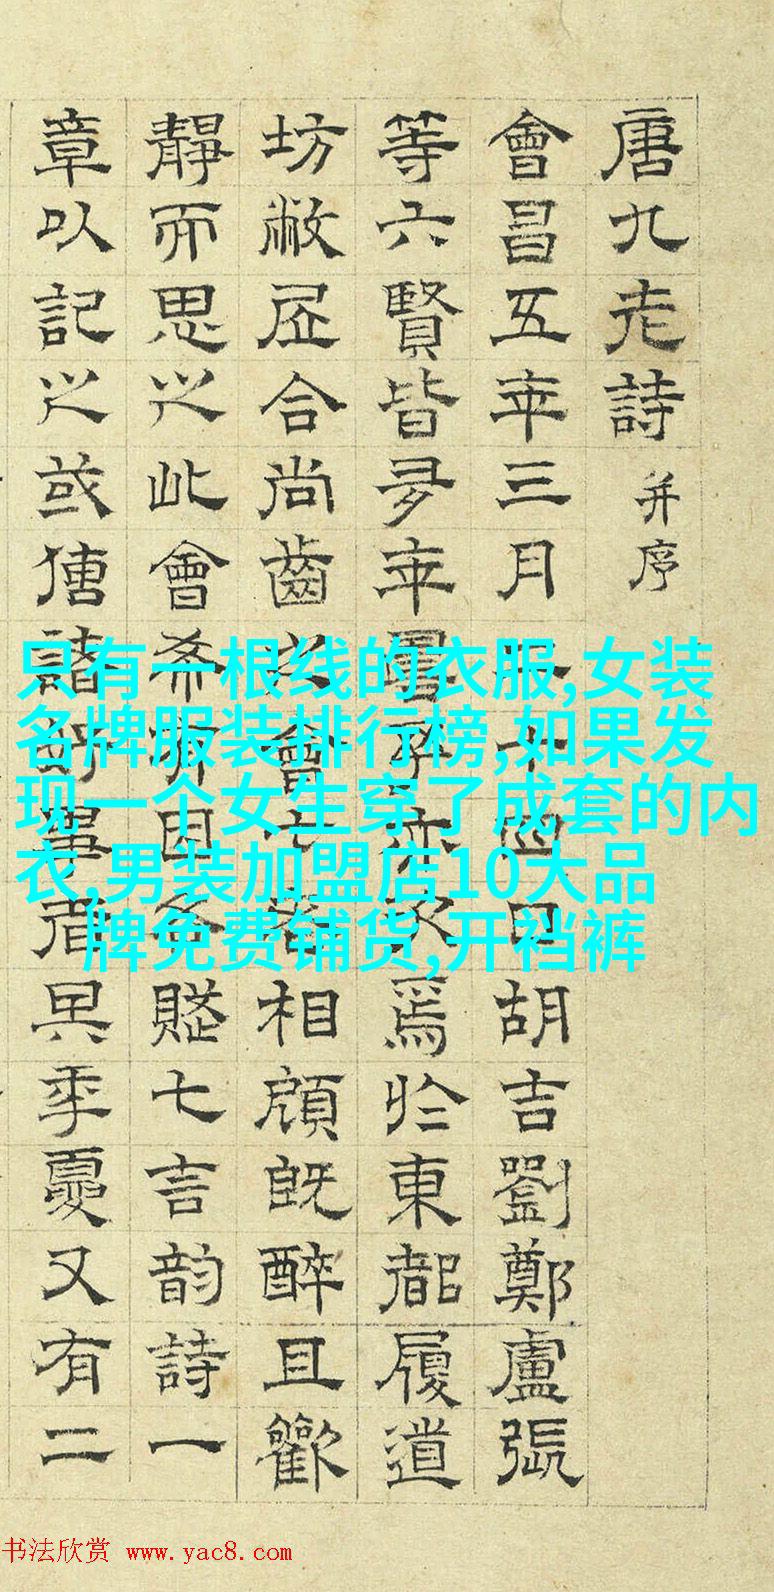 唐九老詩 并序
會昌五年三月二十四日胡吉劉鄭盧張
等六賢皆多年壽予亦次焉於東都履道
坊敝居合尚齒之會七老相顧既醉且歡
靜而思之此會希有因各賦七言韵詩一
章以記之或傳諸好事者其年夏又有二
只有一根线的衣服,女装
名牌服装排行榜,如果发
现一个女生穿了成套的内
衣,男装加盟店10大品
牌免费铺货,开裆裤
书法欣赏 www.yac8.com